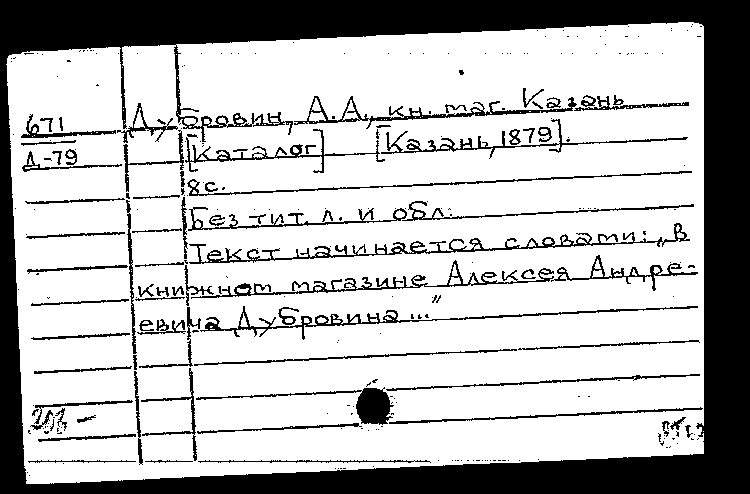 671
Д-79
Дубровин, А.А., кн. маг. Казань
[Каталог] [Казань, 1879].
8с.
Без тит. л. и обл.
Текст начинается словами: „В
книжном магазине Алексея Андре-
евича Дубровина..."